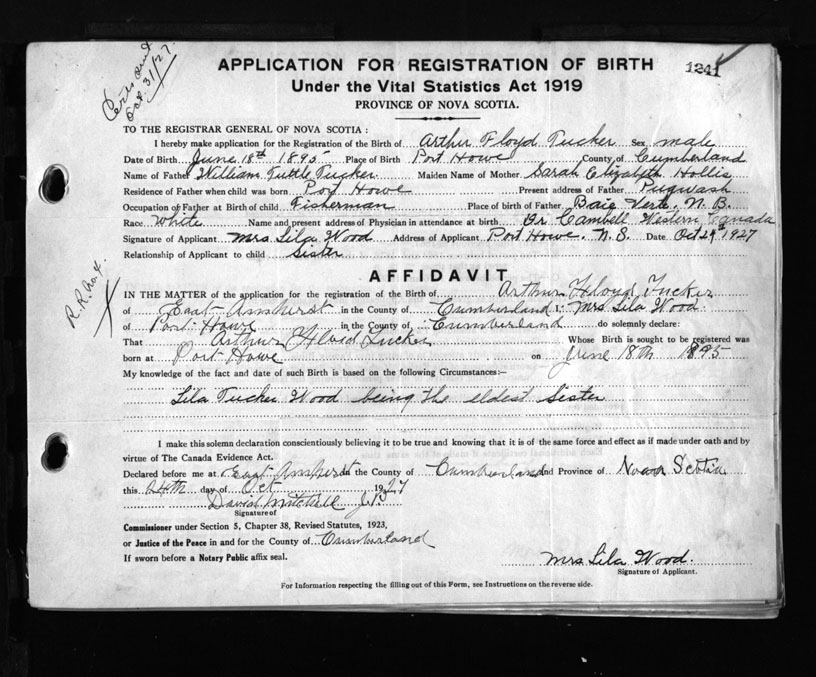 Cert's sent
Oct. 31/27.
APPLICATION FOR REGISTRATION OF BIRTH
1241
Under the Vital Statistics Act 1919
PROVINCE OF NOVA SCOTIA.
TO THE REGISTRAR GENERAL OF NOVA SCOTIA :
I hereby make application for the Registration of the Birth of Arthur Floyd Tucker Sex male
Date of Birth June 18th 1895 Place of Birth Port Howe County of Cumberland
Name of Father William Tuttle Tucker Maiden Name of Mother Sarah Elizabeth Hollis
Residence of Father when child was born Port Howe Present address of Father Pugwash
Occupation of Father at Birth of child Fisherman Place of birth of Father Baie Verte, N. B.
Race White Name and present address of Physician in attendance at birth Dr Cambell Western Canada
Signature of Applicant Mrs Lila Wood Address of Applicant Port Howe. N. S. Date Oct 24th 1927
Relationship of Applicant to child Sister
R. R. No 4.
AFFIDAVIT
IN THE MATTER of the application for the registration of Birth of Arthur Floyd Tucker
of East Amherst in the County of Cumberland I, Mrs Lila Wood
of Port Howe in the County of Cumberland do solemnly declare:
That Arthur Floyd Tucker Whose Birth is sought to be registered was
born at Port Howe on June 18th 1895
My knowledge of the fact and date of such Birth is based on the following Circumstances:—
Lila Tucker Wood being the eldest Sister
I make this solemn declaration conscientiously believing it to be true and knowing that it is of the same force and effect as if made under oath and by
virtue of The Canada Evidence Act.
Declared before me at East Amherst in the County of Cumberland and Province of Nova Scotia
this 24th day of Oct 1927
David Mitchell J.P.
Signature of
Commissioner under Section 5, Chapter 38, Revised Statutes, 1923,
or Justice of the Peace in and for the County of Cumberland
If sworn before a Notary Public affix seal.
Mrs Lila Wood.
Signature of Applicant.
For Information respecting the filling out of this Form, see Instructions on the reverse side.